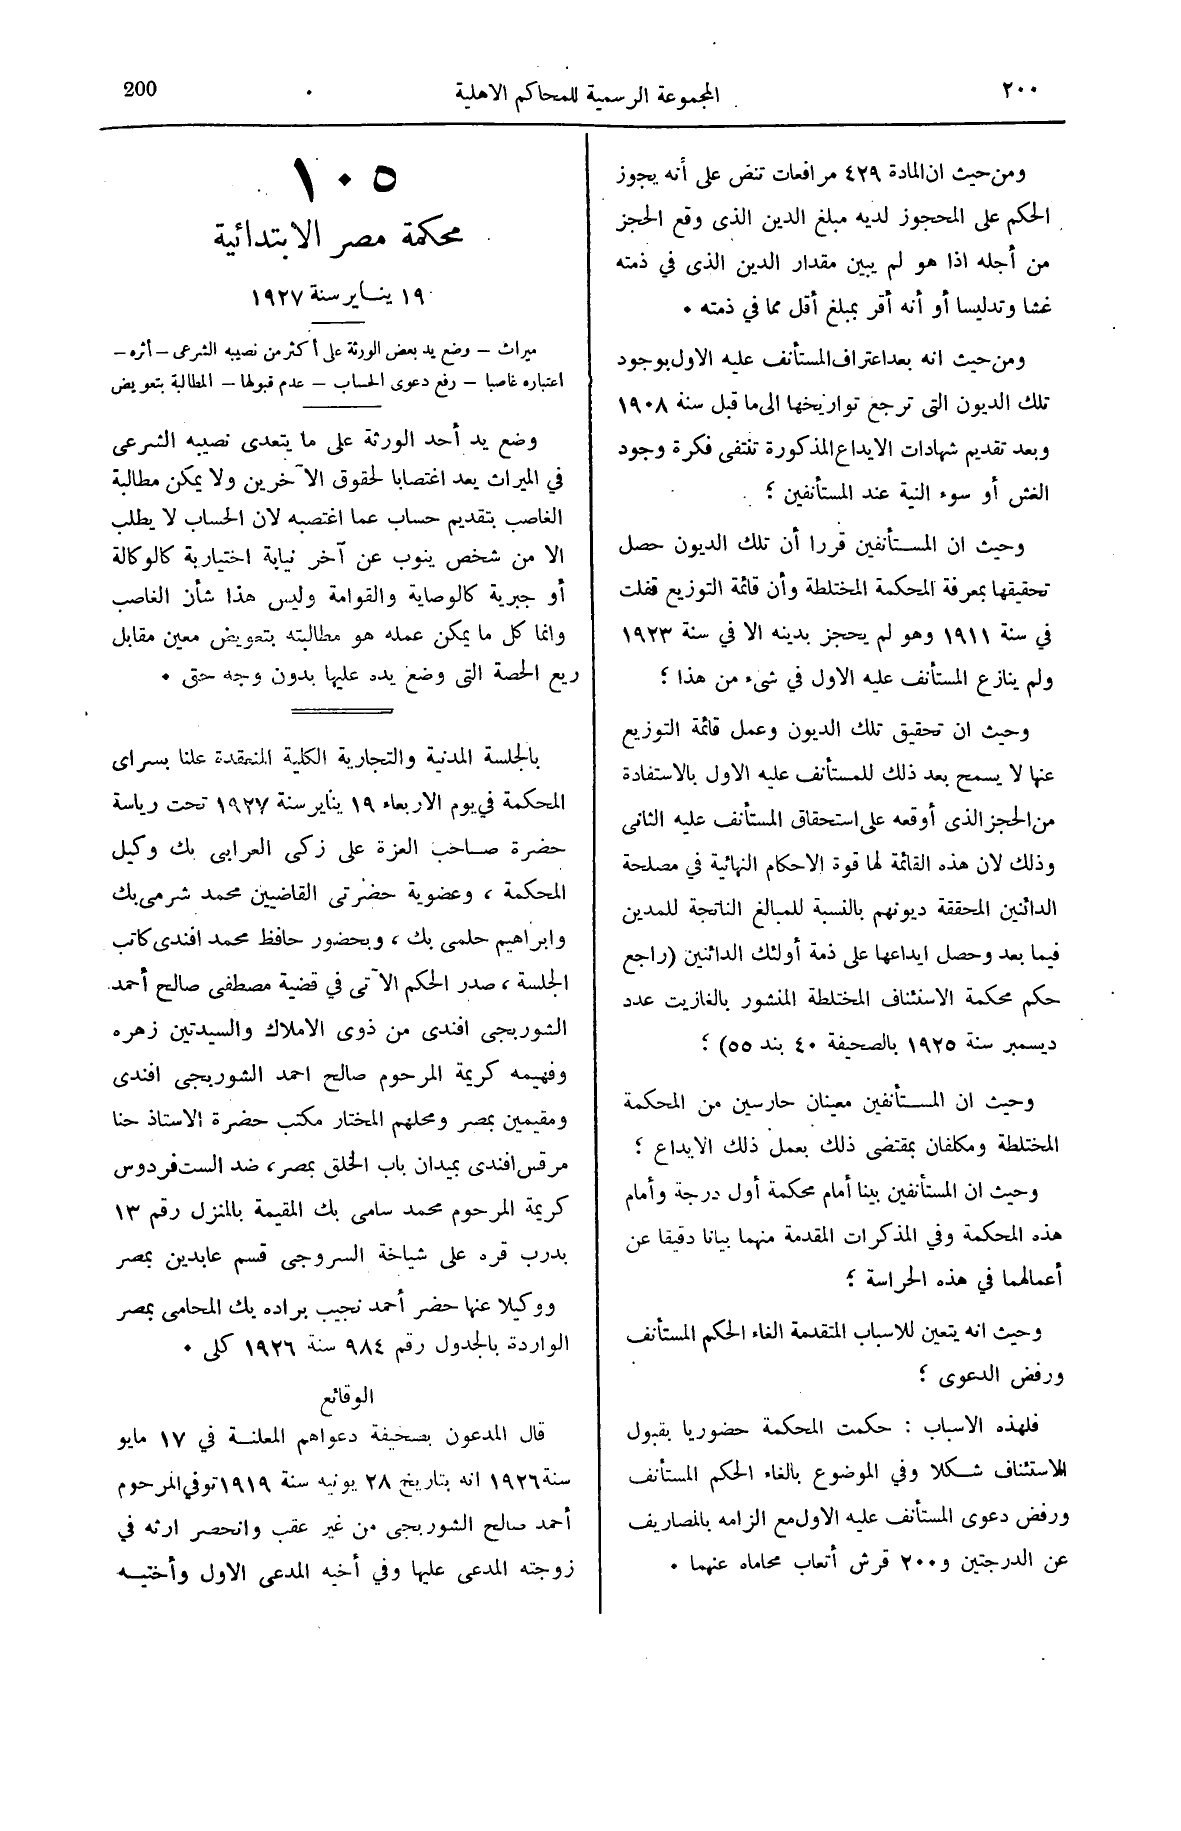 ٢٠٠
المجموعة الرسمية للمحاكم الاهلية
200
ومن حيث ان المادة ٤٢٩ مرافعات تنص على أنه يجوز
الحكم على المحجوز لديه مبلغ الدين الذى وقع الحجز
من أجله اذا هو لم يبين مقدار الدين الذى في ذمته
غشا وتدليسا أو أنه أقر بمبلغ أقل مما في ذمته .
ومن حيث انه بعد اعتراف المستأنف عليه الاول بوجود
تلك الديون التى ترجع تواريخها الى ما قبل سنة ١٩٠٨
وبعد تقديم شهادات الايداع المذكورة تنتفى فكرة وجود
الغش أو سوء النية عند المستأنفين ؛
وحيث ان المستأنفين قررا أن تلك الديون حصل
تحقيقها بمعرفة المحكمة المختلطة وأن قائمة التوزيع قفلت
في سنة ١٩١١ وهو لم يحجز بدينه الا في سنة ١٩٢٣
ولم ينازع المستأنف عليه الاول في شىء من هذا ؛
وحيث ان تحقيق تلك الديون وعمل قائمة التوزيع
عنها لا يسمح بعد ذلك للمستأنف عليه الاول بالاستفادة
من الحجز الذى أوقعه على استحقاق المستأنف عليه الثانى
وذلك لان هذه القائمة لها قوة الاحكام النهائية في مصلحة
الدائنين المحققة ديونهم بالنسبة للمبالغ الناتجة للمدين
فيما بعد وحصل ايداعها على ذمة أولئك الدائنين (راجع
حكم محكمة الاستئناف المختلطة المنشور بالغازيت عدد
ديسمبر سنة ١٩٢٥ بالصحيفة ٤٠ بند ٥٥) ؛
وحيث ان المستأنفين معينان حارسين من المحكمة
المختلطة ومكلفان بمقتضى ذلك بعمل ذلك الايداع ؛
وحيث ان المستأنفين بينا أمام محكمة أول درجة وأمام
هذه المحكمة وفي المذكرات المقدمة منهما بيانا دقيقا عن
أعمالهما في هذه الحراسة ؛
وحيث انه يتعين للاسباب المتقدمة الغاء الحكم المستأنف
ورفض الدعوى ؛
فلهذه الاسباب : حكمت المحكمة حضوريا بقبول
الاستئناف شكلا وفي الموضوع بالغاء الحكم المستأنف
ورفض دعوى المستأنف عليه الاول مع الزامه بالمصاريف
عن الدرجتين و٢٠٠ قرش أتعاب محاماه عنهما .
١٠٥
محكمة مصر الابتدائية
١٩ يناير سنة ١٩٢٧
ميراث – وضع يد بعض الورثة على أكثر من نصيبه الشرعى – أثره –
اعتباره غاصبا – رفع دعوى الحساب – عدم قبولها – المطالبة بتعويض
وضع يد أحد الورثة على ما يتعدى نصيبه الشرعى
في الميراث يعد اغتصابا لحقوق الآخرين ولا يمكن مطالبة
الغاصب بتقديم حساب عما اغتصبه لان الحساب لا يطلب
الا من شخص ينوب عن آخر نيابة اختيارية كالوكالة
أو جبرية كالوصاية والقوامة وليس هذا شأن الغاصب
وانما كل ما يمكن عمله هو مطالبته بتعويض معين مقابل
ريع الحصة التى وضع يده عليها بدون وجه حق .
بالجلسة المدنية والتجارية الكلية المنعقدة علنا بسراى
المحكمة في يوم الاربعاء ١٩ يناير سنة ١٩٢٧ تحت رياسة
حضرة صاحب العزة على زكى العرابى بك وكيل
المحكمة ، وعضوية حضرتى القاضيين محمد شرمى بك
وابراهيم حلمى بك ، وبحضور حافظ محمد افندى كاتب
الجلسة ، صدر الحكم الآتى في قضية مصطفى صالح أحمد
الشوربجى افندى من ذوى الاملاك والسيدتين زهره
وفهيمه كريمة المرحوم صالح احمد الشوربجى افندى
ومقيمين بمصر ومحلهم المختار مكتب حضرة الاستاذ حنا
مرقس افندى بميدان باب الخلق بمصر ، ضد الست فردوس
كريمة المرحوم محمد سامى بك المقيمة بالمنزل رقم ١٣
بدرب قره على شياخة السروجى قسم عابدين بمصر
ووكيلا عنها حضر أحمد نجيب براده بك المحامى بمصر
الواردة بالجدول رقم ٩٨٤ سنة ١٩٢٦ كلى .
الوقائع
قال المدعون بصحيفة دعواهم المعلنة في ١٧ مايو
سنة ١٩٢٦ انه بتاريخ ٢٨ يونيه سنة ١٩١٩ توفي المرحوم
أحمد صالح الشوربجى من غير عقب وانحصر ارثه في
زوجته المدعى عليها وفي أخيه المدعى الاول وأختيه